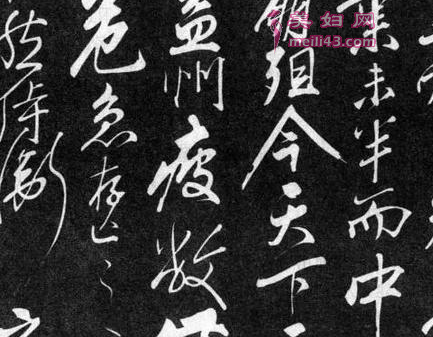 美妇网
meili43.com
業未半而中
崩殂今天下
益州疲敝
危急存亡之
然侍衛